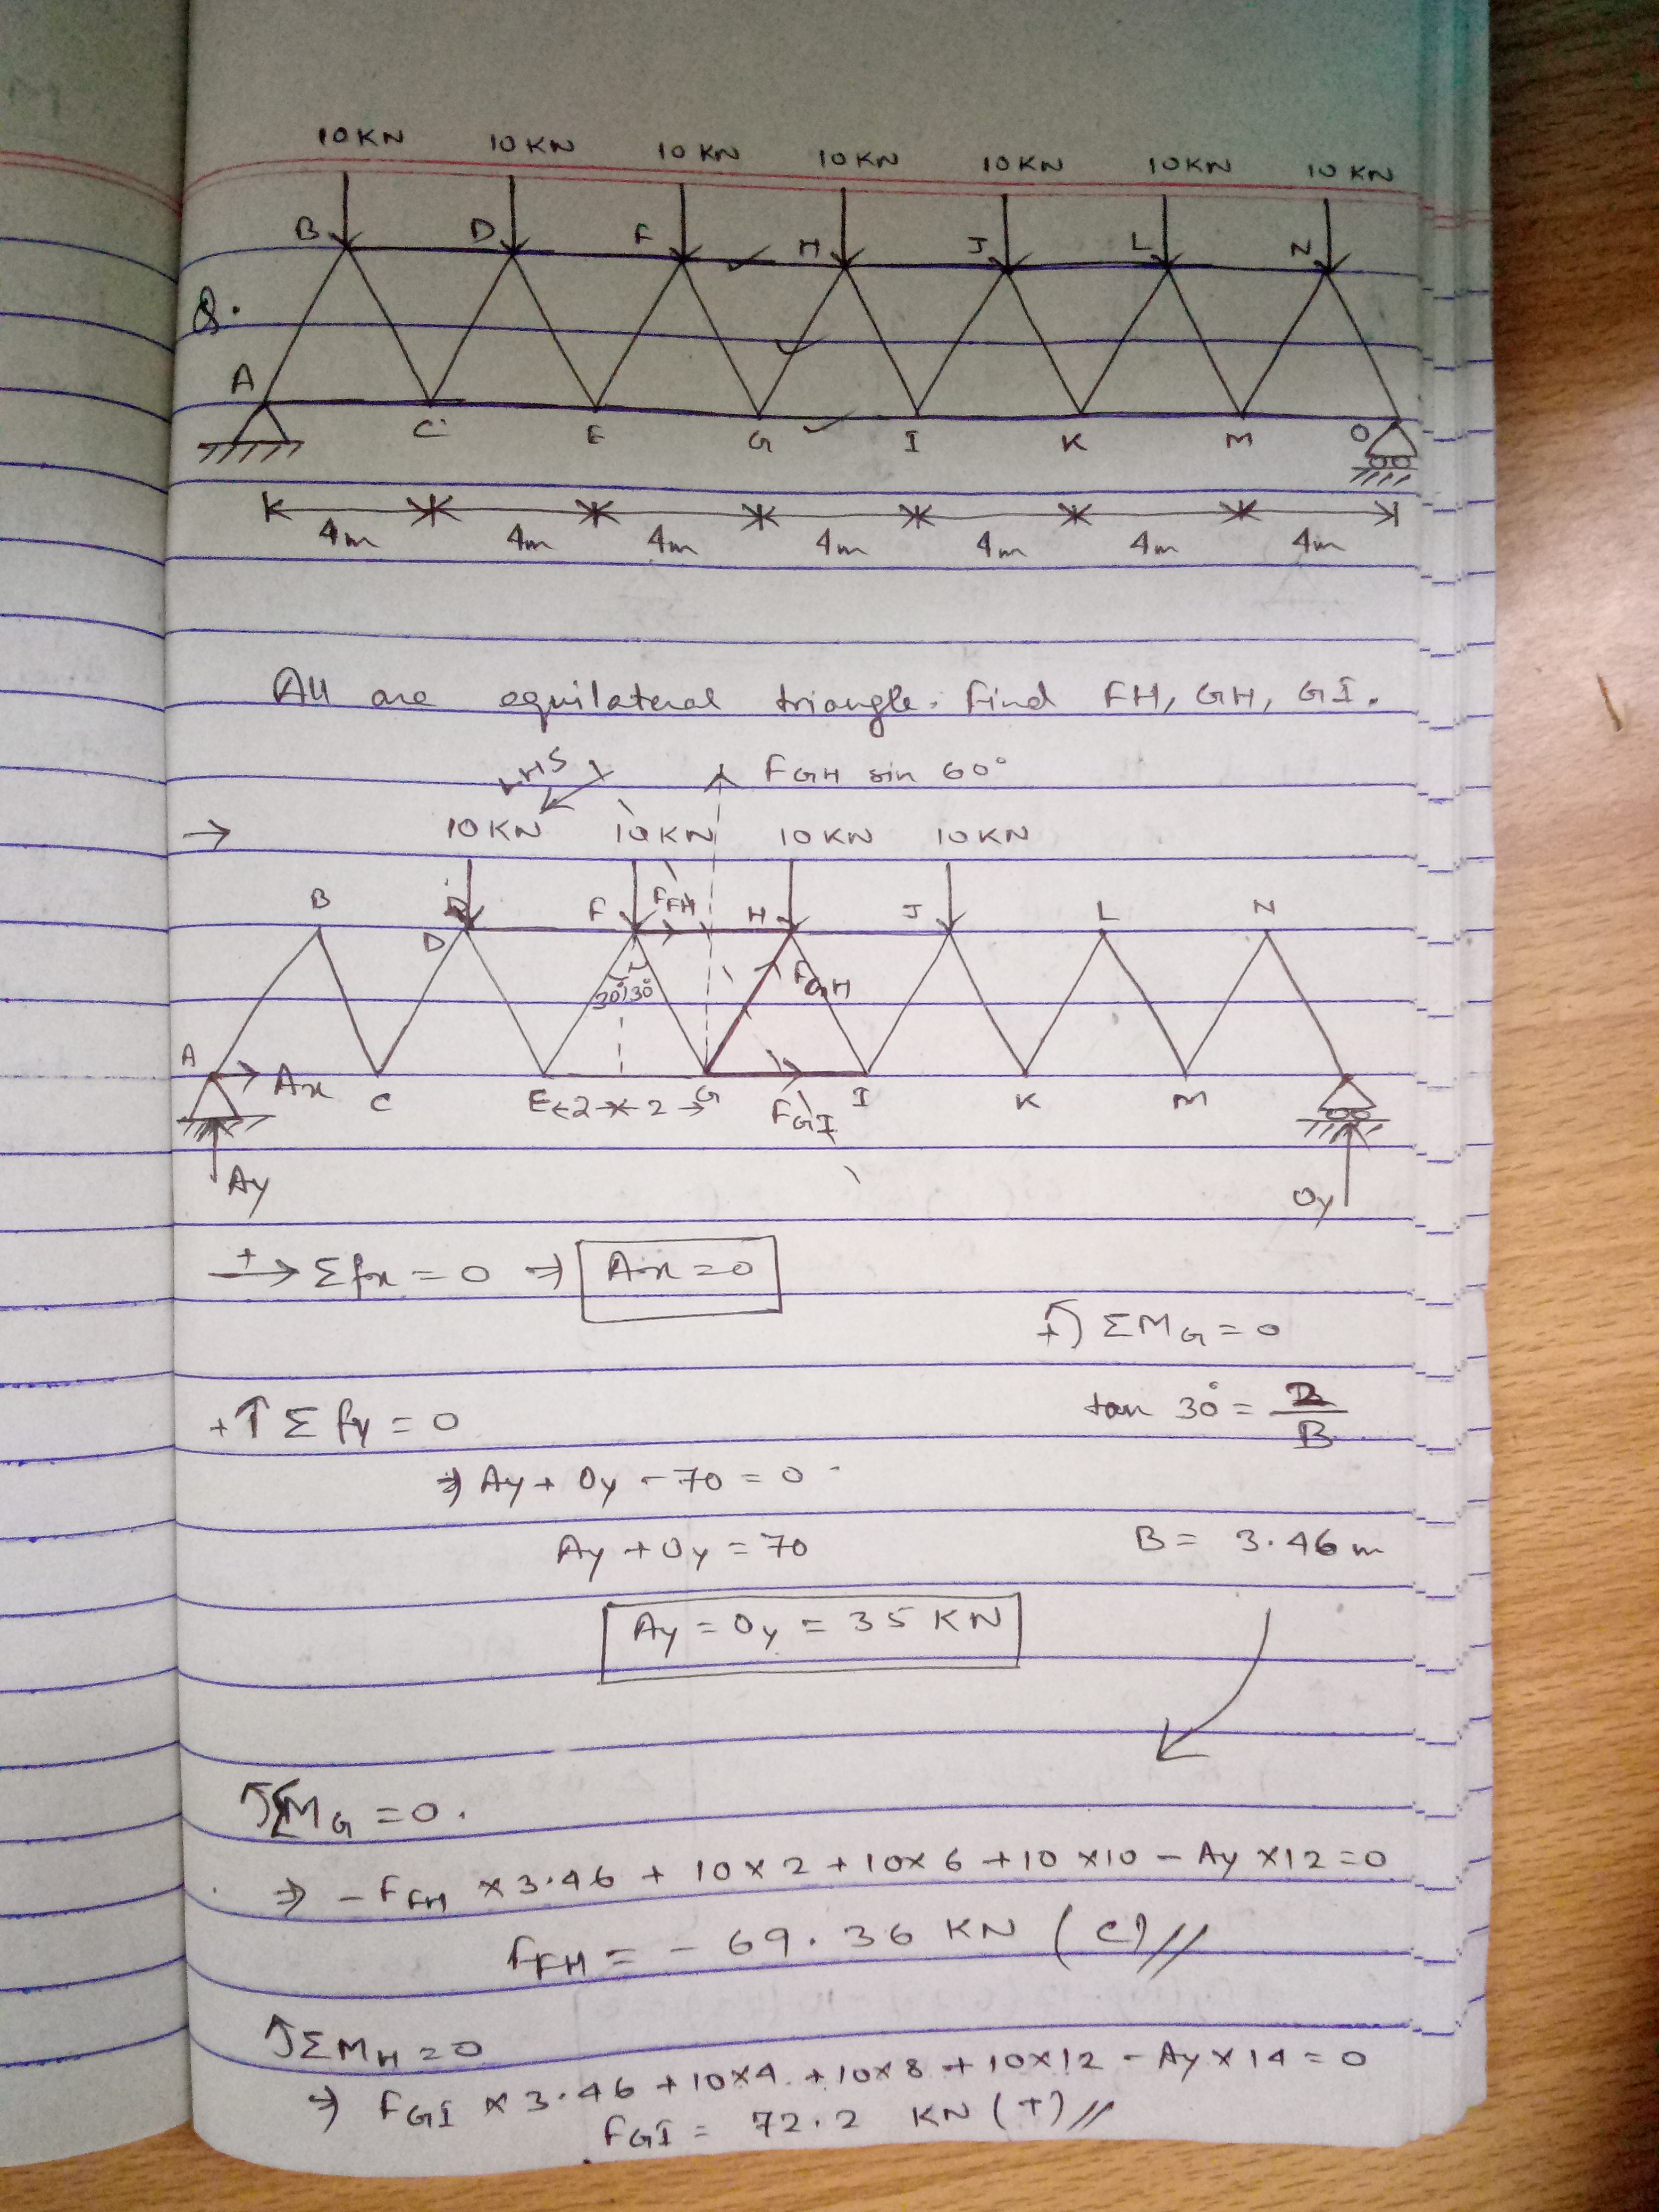 10 KN 10 KN 10 KN 10 KN 10 KN 10 KN 10 KN
B D F H J L N
Q.
A
C E G I K M O
4m 4m 4m 4m 4m 4m 4m
All are equilateral triangle. Find FH, GH, GI.
LHS FGH sin 60°
→ 10 KN 10 KN 10 KN 10 KN
B D F FFH H J L N
30° 30° FGH
A Ax C E ←2→←2→ G FGI I K M
Ay Oy
+→ Σfx = 0 ⇒ Ax = 0
+↺ ΣMG = 0
+↑ Σfy = 0 tan 30° = 2/B
⇒ Ay + Oy - 70 = 0
Ay + Oy = 70 B = 3.46 m
Ay = Oy = 35 KN
↺ΣMG = 0.
⇒ - FFH × 3.46 + 10 × 2 + 10 × 6 + 10 × 10 - Ay × 12 = 0
FFH = - 69.36 KN (C)//
↺ΣMH = 0
⇒ FGI × 3.46 + 10×4 + 10×8 + 10×12 - Ay × 14 = 0
FGI = 72.2 KN (T)//